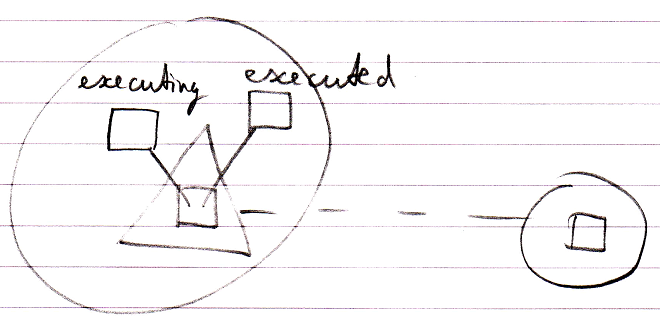 executing executed